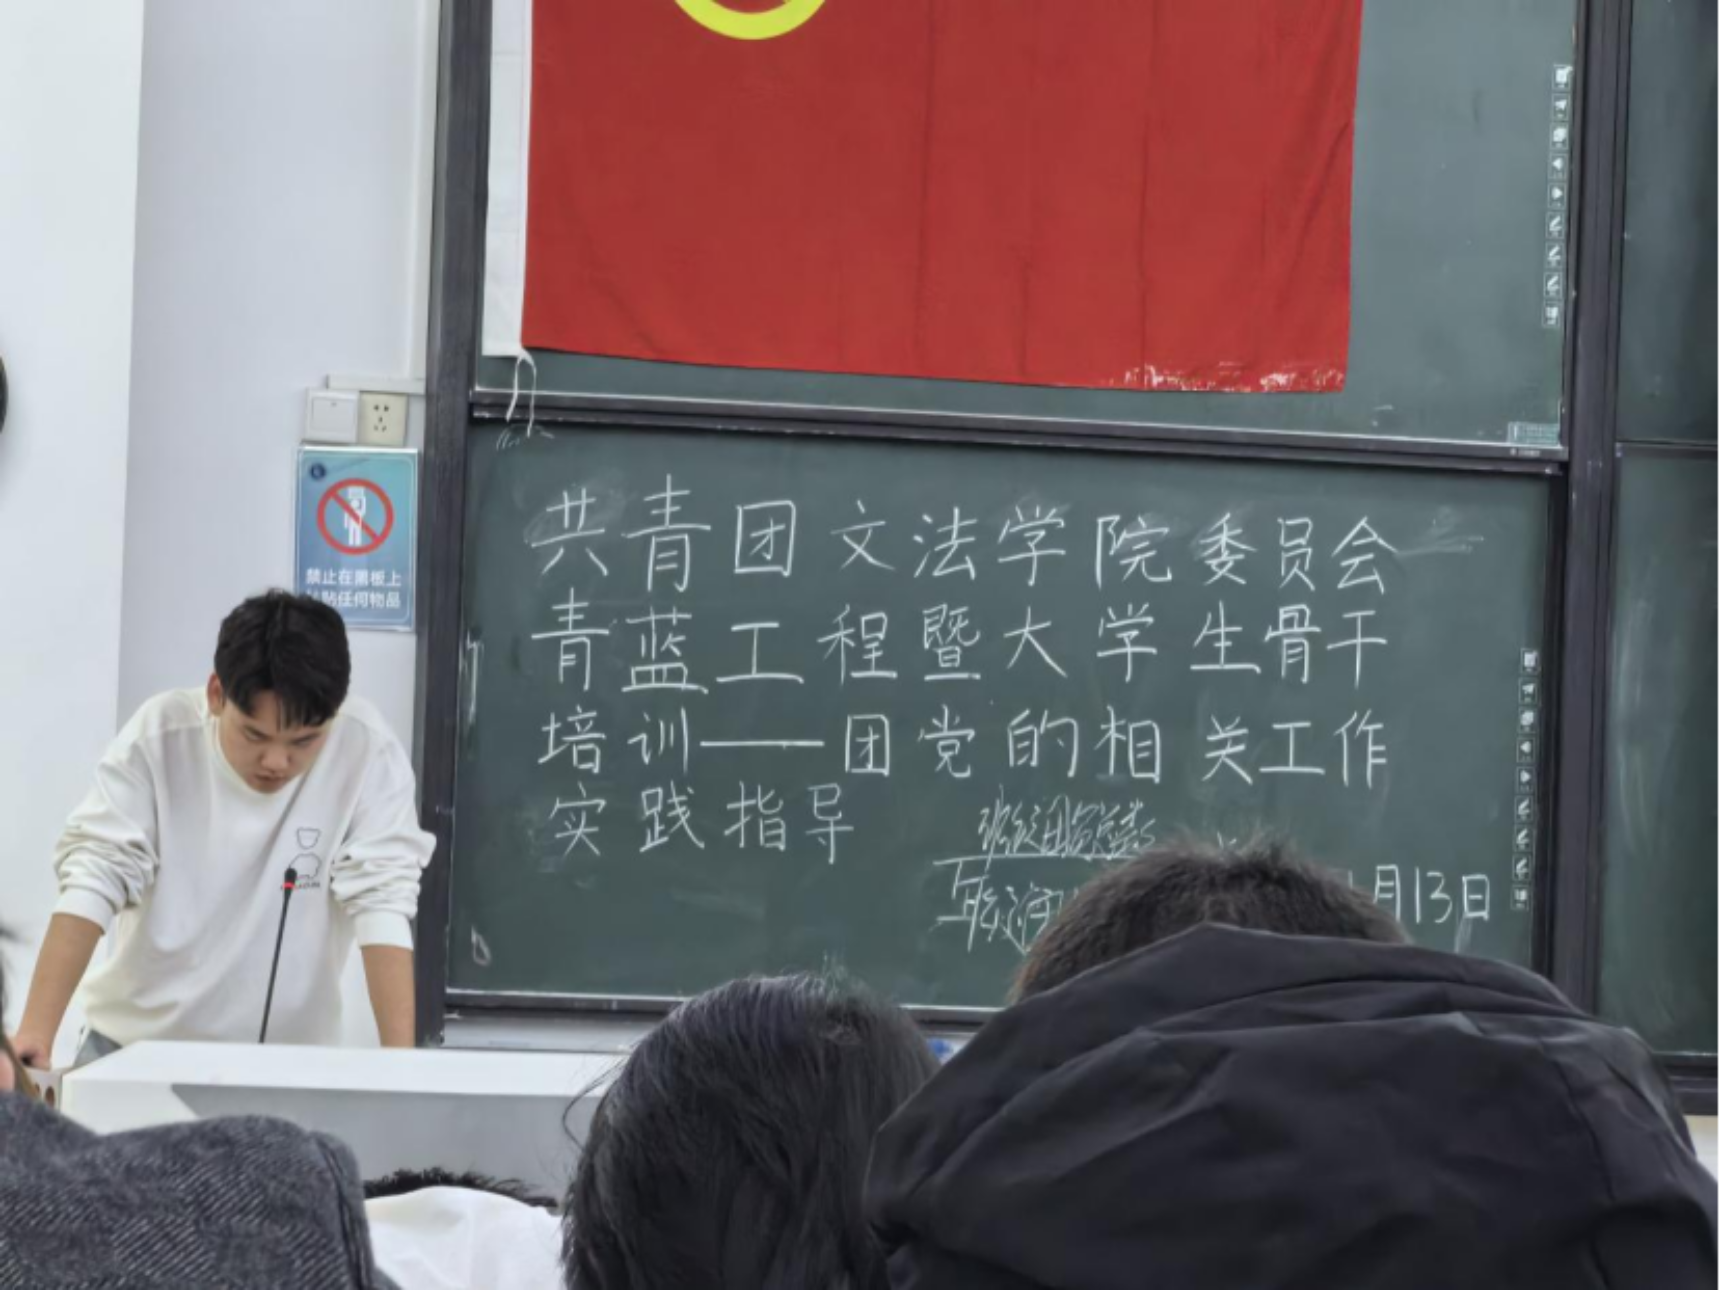 禁止在黑板上
粘贴任何物品
共青团文法学院委员会
青蓝工程暨大学生骨干
培训——团党的相关工作
实践指导
月13日